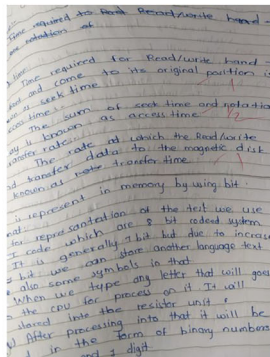 Time required to Read Read/write hand
one rotation of
Time required for Read/write hand
and come to its original position is
seek time.
access time:-
The sum of seek time and rotation
is known as access time. 1/2
transfer rate:-
The rate at which the Read/write
transfer data to the magnetic disk
known as rate transfer time.
is represent in memory by using bit.
for represantration of the text we use
code which are 8 bit coded system
It is generally 7 bit but due to increase
bit we can store another language text
also some symbols in that
When we type any letter that will goes
the cpu for process on it. It will
stared into the resistor unit.
After processing into that it will be
in the form of binary numbers
and 1 digit